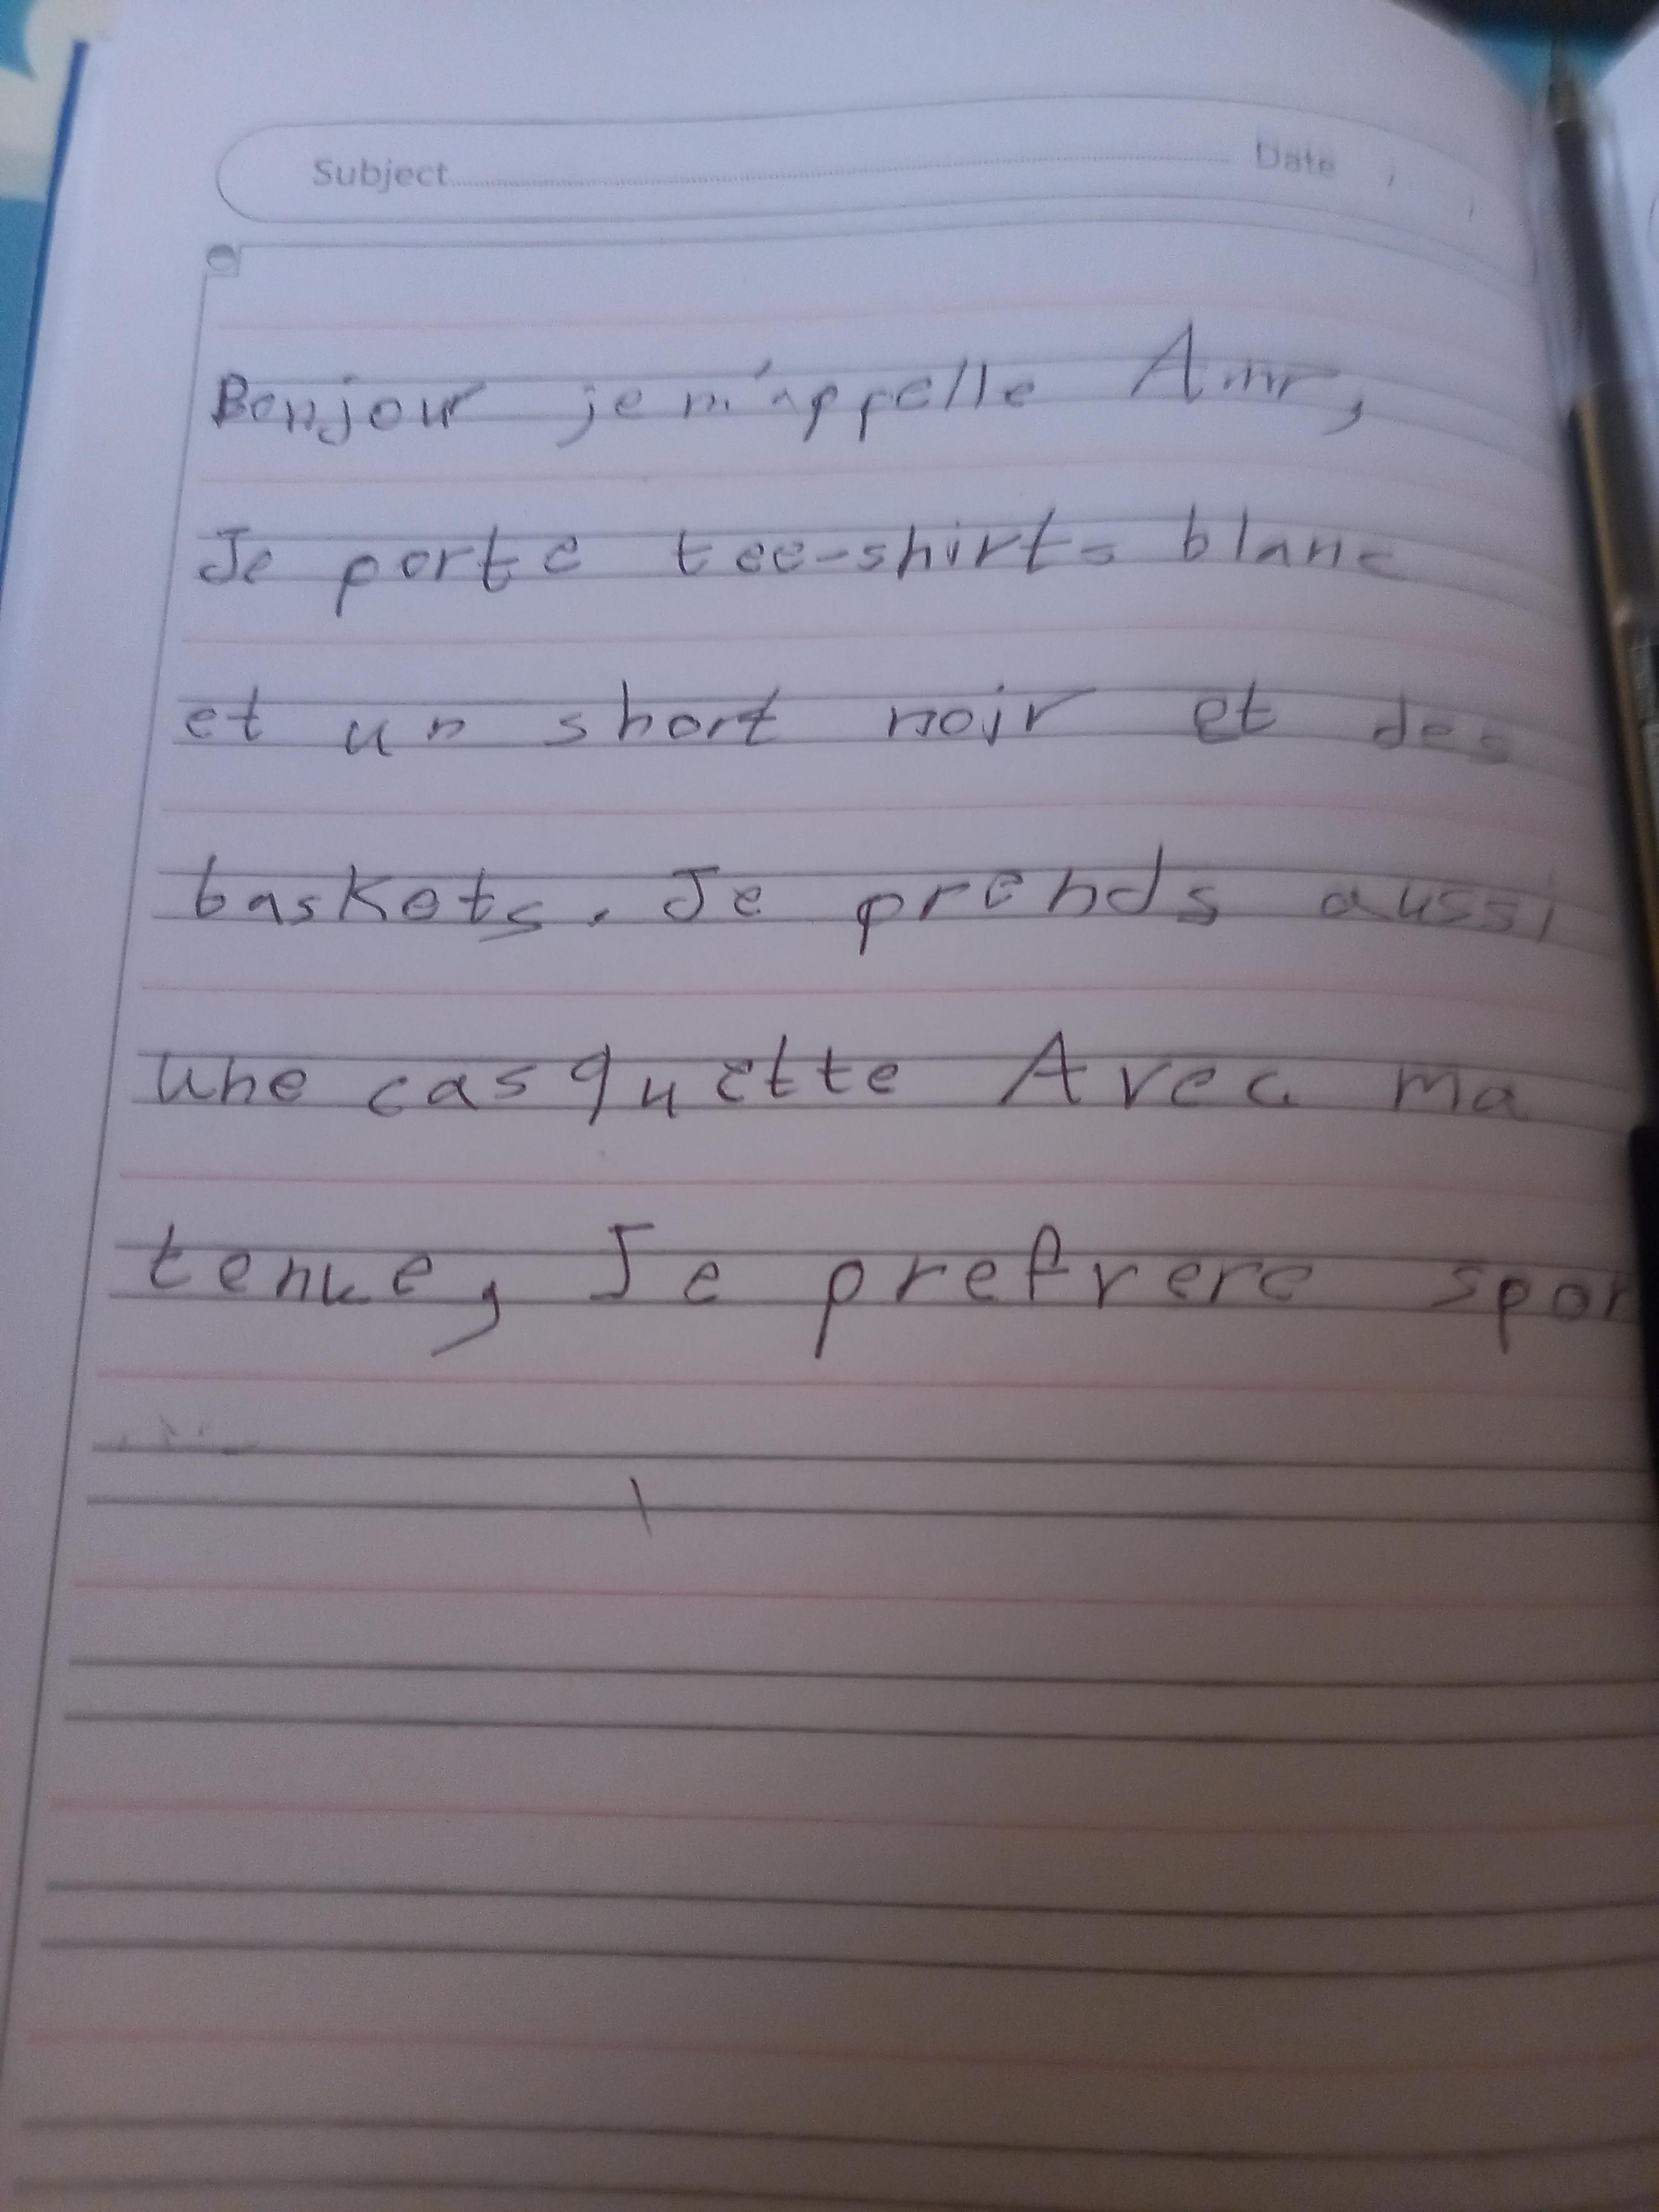 Subject Date
Bonjour je m'appelle Amr,
Je porte tee-shirts blanc
et un short noir et des
baskets. Je prends aussi
une casquette Avec ma
tenue, Je prefrere spor